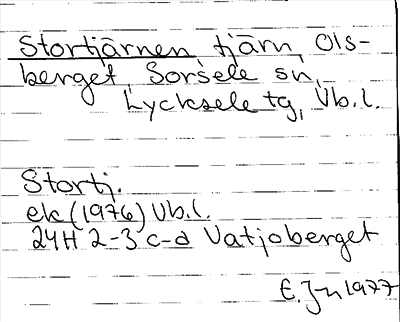 Stortjärnen tjärn, Ols-
berget, Sorsele sn,
Lycksele tg, Vb.l.
Stortj.
ek (1976) Vb.l.
24H 2-3 c-d Vatjoberget
E. Jn 1977